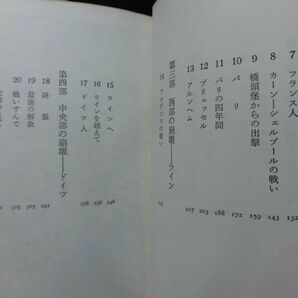 7 フランス人 132
8 カーン――シェルブールの戦い 143
9 橋頭堡からの出撃 159
10 パリ 172
11 パリの四年間 188
12 ブリュッセル 203
13 アルンヘム 217
第三部 西部の崩壊――ライン
14 アルデンヌの戦い
15 ラインへ 246
16 ラインを越えて 256
17 ドイツ人 278
第四部 中央部の崩壊――ドイツ
18 降服
19 最後の解放
20 戦いすんで